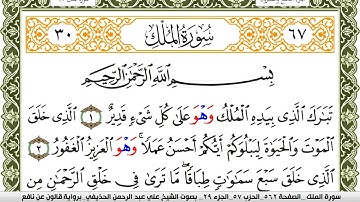 ٣٠ سُورَةُ الْمُلْكِ ٦٧
بِسْمِ اللَّهِ الرَّحْمَٰنِ الرَّحِيمِ
تَبَارَكَ الَّذِي بِيَدِهِ الْمُلْكُ وَهْوَ عَلَىٰ كُلِّ شَيْءٍ قَدِيرٌ ١ الَّذِي خَلَقَ
الْمَوْتَ وَالْحَيَوٰةَ لِيَبْلُوَكُمْ أَيُّكُمْ أَحْسَنُ عَمَلًا وَهْوَ الْعَزِيزُ الْغَفُورُ ٢
الَّذِي خَلَقَ سَبْعَ سَمَٰوَٰتٍ طِبَاقًا مَّا تَرَىٰ فِي خَلْقِ الرَّحْمَٰنِ مِن
سورة الملك _الصفحة ٥٦٢ _الحزب ٥٧ _الجزء ٢٩ _بصوت الشيخ علي عبد الرحمن الحذيفي _برواية قالون عن نافع